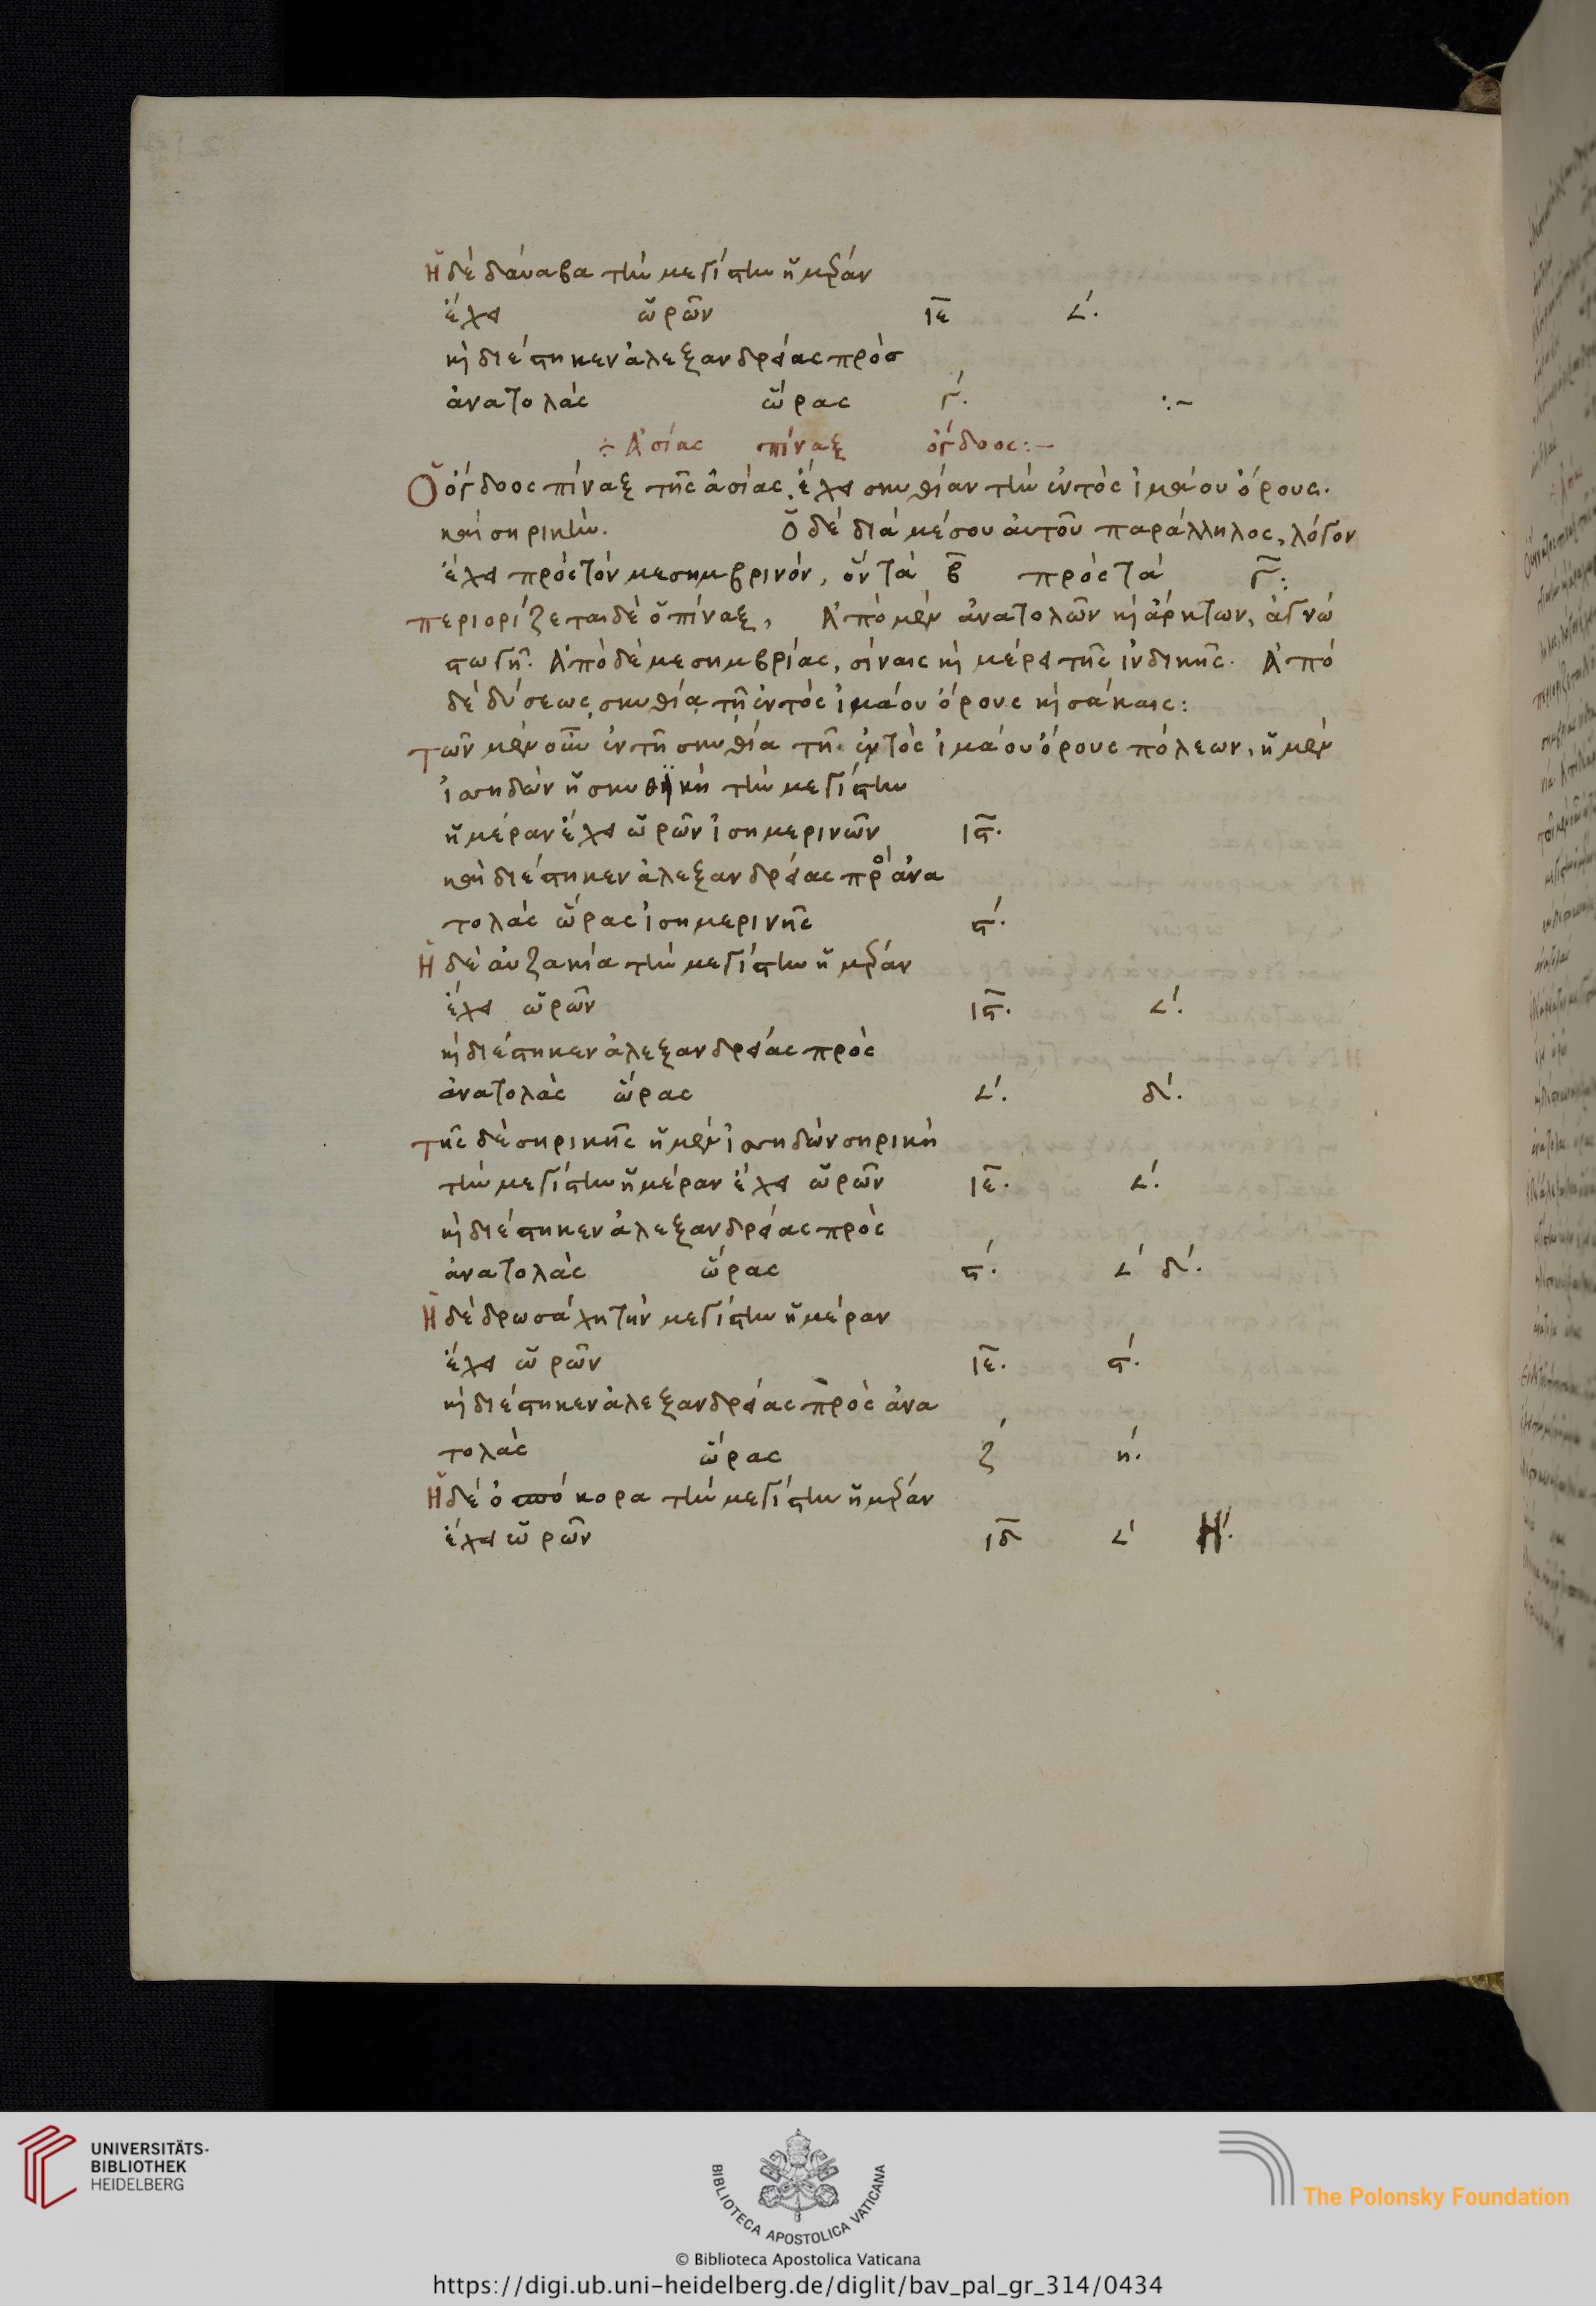 Ἡ δὲ δάναβα τὴν μεγίστην ἡμέραν
ἔχει ὡρῶν ιε ∠΄.
κὶ διέστηκεν ἀλεξανδρείας πρὸσ
ἀνατολὰς ὥρας γ΄. :~
÷ Ἀσίας πίναξ ὄγδοος:—
Ὁ ὄγδοος πίναξ τῆς ἀσίας. ἔχει σκυθίαν τὴν ἐντὸς ἰμάου ὄρους.
καὶ σηρικήν. Ὁ δὲ διὰ μέσου ἀυτοῦ παράλληλος, λόγον
ἔχει πρὸς τὸν μεσημβρινόν, ὃν τὰ β πρὸς τὰ γ:
περιορίζεται δὲ ὁ πίναξ, Ἀπὸ μὲν ἀνατολῶν κὶ ἄρκτων, ἀγνώ
στω γῆ. Ἀπὸ δὲ μεσημβρίας, σίναις κὶ μέρει τῆς ἰνδικῆς. Ἀπὸ
δὲ δύσεως, σκυθία, τῆ ἐντὸς ἰμάου ὄρους κὶ σάκαις:
τῶν μὲν οὖν ἐν τῆ σκυθία τῆ ἐκτὸς ἰμάου ὄρους πόλεων, ἡ μὲν
ἰσσηδὼν ἡ σκυθϊκὴ τὴν μεγίστην
ἡμέραν ἔχει ὡρῶν ἰσημερινῶν ιϛ.
καὶ διέστηκεν ἀλεξανδρείας πρὸ ἀνα
τολὰς ὥρας ἰσημερινῆς ϛ΄.
Ἡ δὲ ἀυζακία τὴν μεγίστην ἡμέραν
ἔχει ὡρῶν ιϛ. ∠΄.
κὶ διέστηκεν ἀλεξανδρείας πρὸς
ἀνατολὰς ὥρας ∠΄. δ΄.
τῆς δὲ σηρικῆς ἡ μὲν ἰσσηδὼν σηρικὴ
τὴν μεγίστην ἡμέραν ἔχει ὡρῶν ιε. ∠΄.
κὶ διέστηκεν ἀλεξανδρείας πρὸς
ἀνατολὰς ὥρας ϛ΄. ∠΄ δ΄.
Ἡ δὲ δρωσάχη τὴν μεγίστην ἡμέραν
ἔχει ὡρῶν ιε. ϛ΄.
κὶ διέστηκεν ἀλεξανδρείας πρὸς ἀνα
τολὰς ὥρας ζ΄ η΄.
Ἡ δὲ ὀ κορα τὴν μεγίστην ἡμέραν
ἔχει ὡρῶν ιδ ∠΄ Η΄.
UNIVERSITÄTS-
BIBLIOTHEK
HEIDELBERG
BIBLIOTECA APOSTOLICA VATICANA
The Polonsky Foundation
© Biblioteca Apostolica Vaticana
https://digi.ub.uni-heidelberg.de/diglit/bav_pal_gr_314/0434